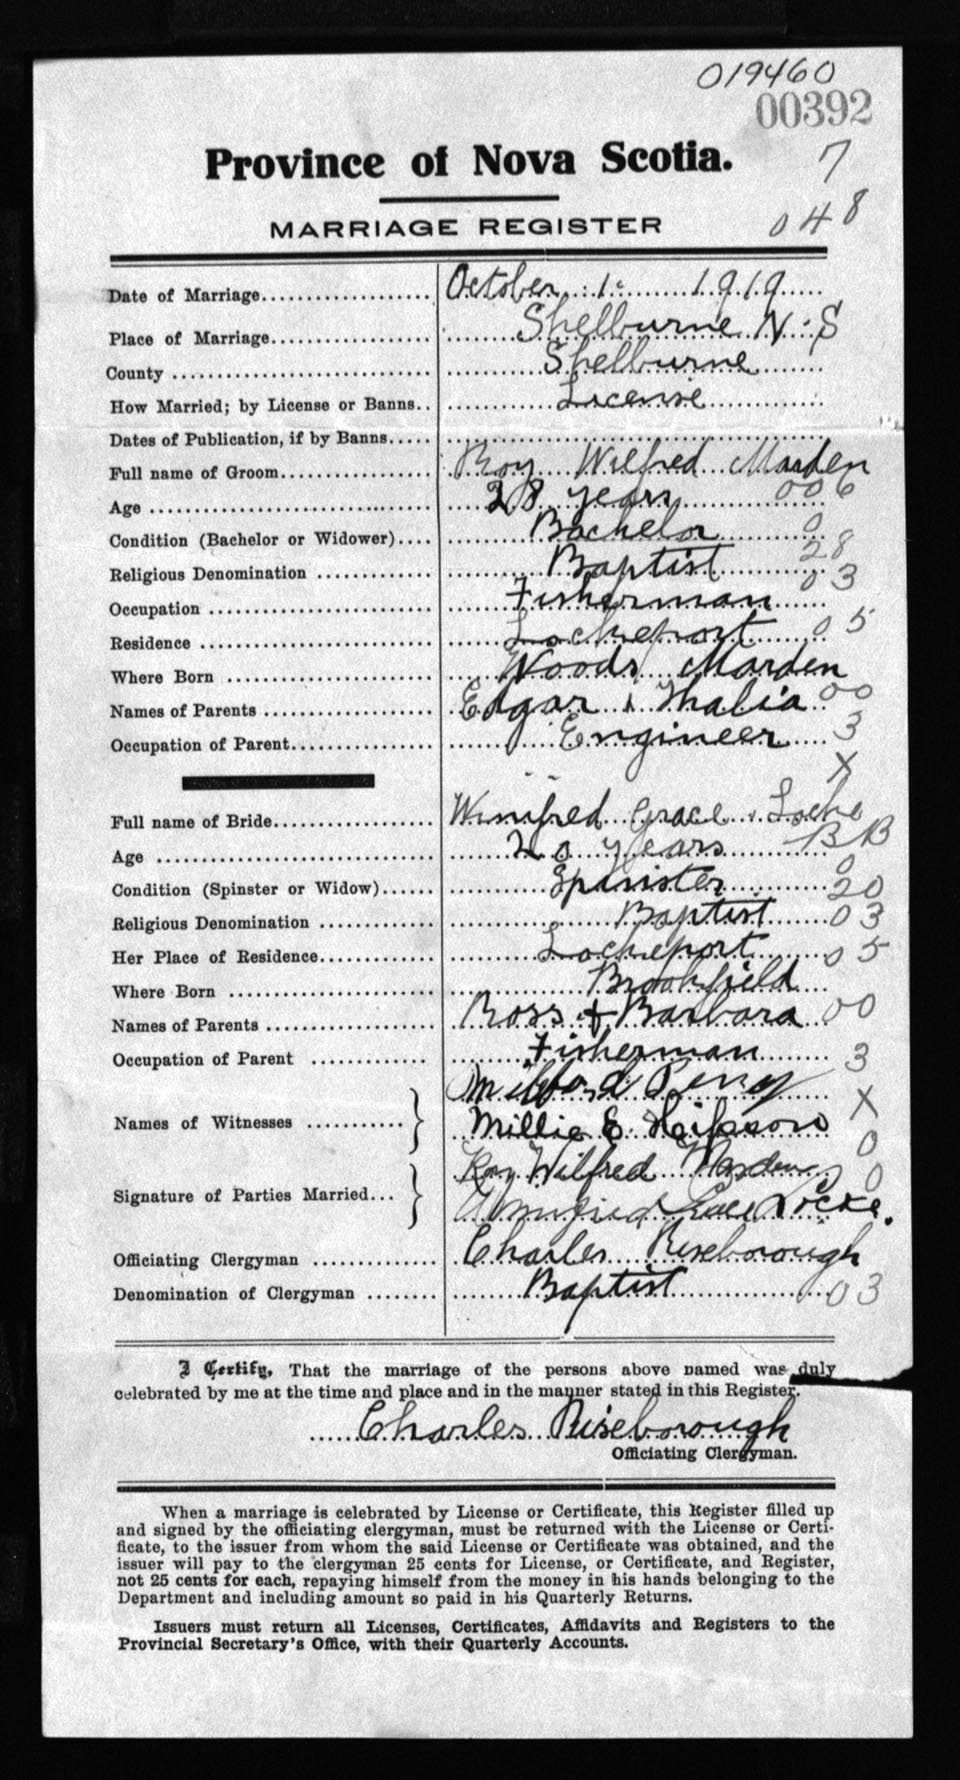 019460
00392
Province of Nova Scotia.
7
MARRIAGE REGISTER
048
Date of Marriage October 1. 1919
Place of Marriage Shelburne N.S
County Shelburne
How Married; by License or Banns License
Dates of Publication, if by Banns
Full name of Groom Roy Wilfred Marden
Age 28 years 006
Condition (Bachelor or Widower) Bachelor 0
28
Religious Denomination Baptist
03
Occupation Fisherman
Residence Lockeport 05
Where Born Woods Marden
Names of Parents Edgar & Thalia 00
Occupation of Parent Engineer 3
X
Full name of Bride Winifred Grace Locke
Age 20 years BB
0
Condition (Spinster or Widow) Spinster 20
Religious Denomination Baptist 03
Her Place of Residence Lockeport 05
Where Born Brookfield
Names of Parents Ross & Barbara 00
Occupation of Parent Fisherman 3
Names of Witnesses Perry
X
Millie E.
0
Signature of Parties Married Roy Wilfred Marden 0
Winifred Grace Locke.
Officiating Clergyman Charles Riseborough
Denomination of Clergyman Baptist 03
I Certify, That the marriage of the persons above named was duly
celebrated by me at the time and place and in the manner stated in this Register.
Charles Riseborough
Officiating Clergyman.
When a marriage is celebrated by License or Certificate, this Register filled up
and signed by the officiating clergyman, must be returned with the License or Certi-
ficate, to the issuer from whom the said License or Certificate was obtained, and the
issuer will pay to the clergyman 25 cents for License, or Certificate, and Register,
not 25 cents for each, repaying himself from the money in his hands belonging to the
Department and including amount so paid in his Quarterly Returns.
Issuers must return all Licenses, Certificates, Affidavits and Registers to the
Provincial Secretary's Office, with their Quarterly Accounts.